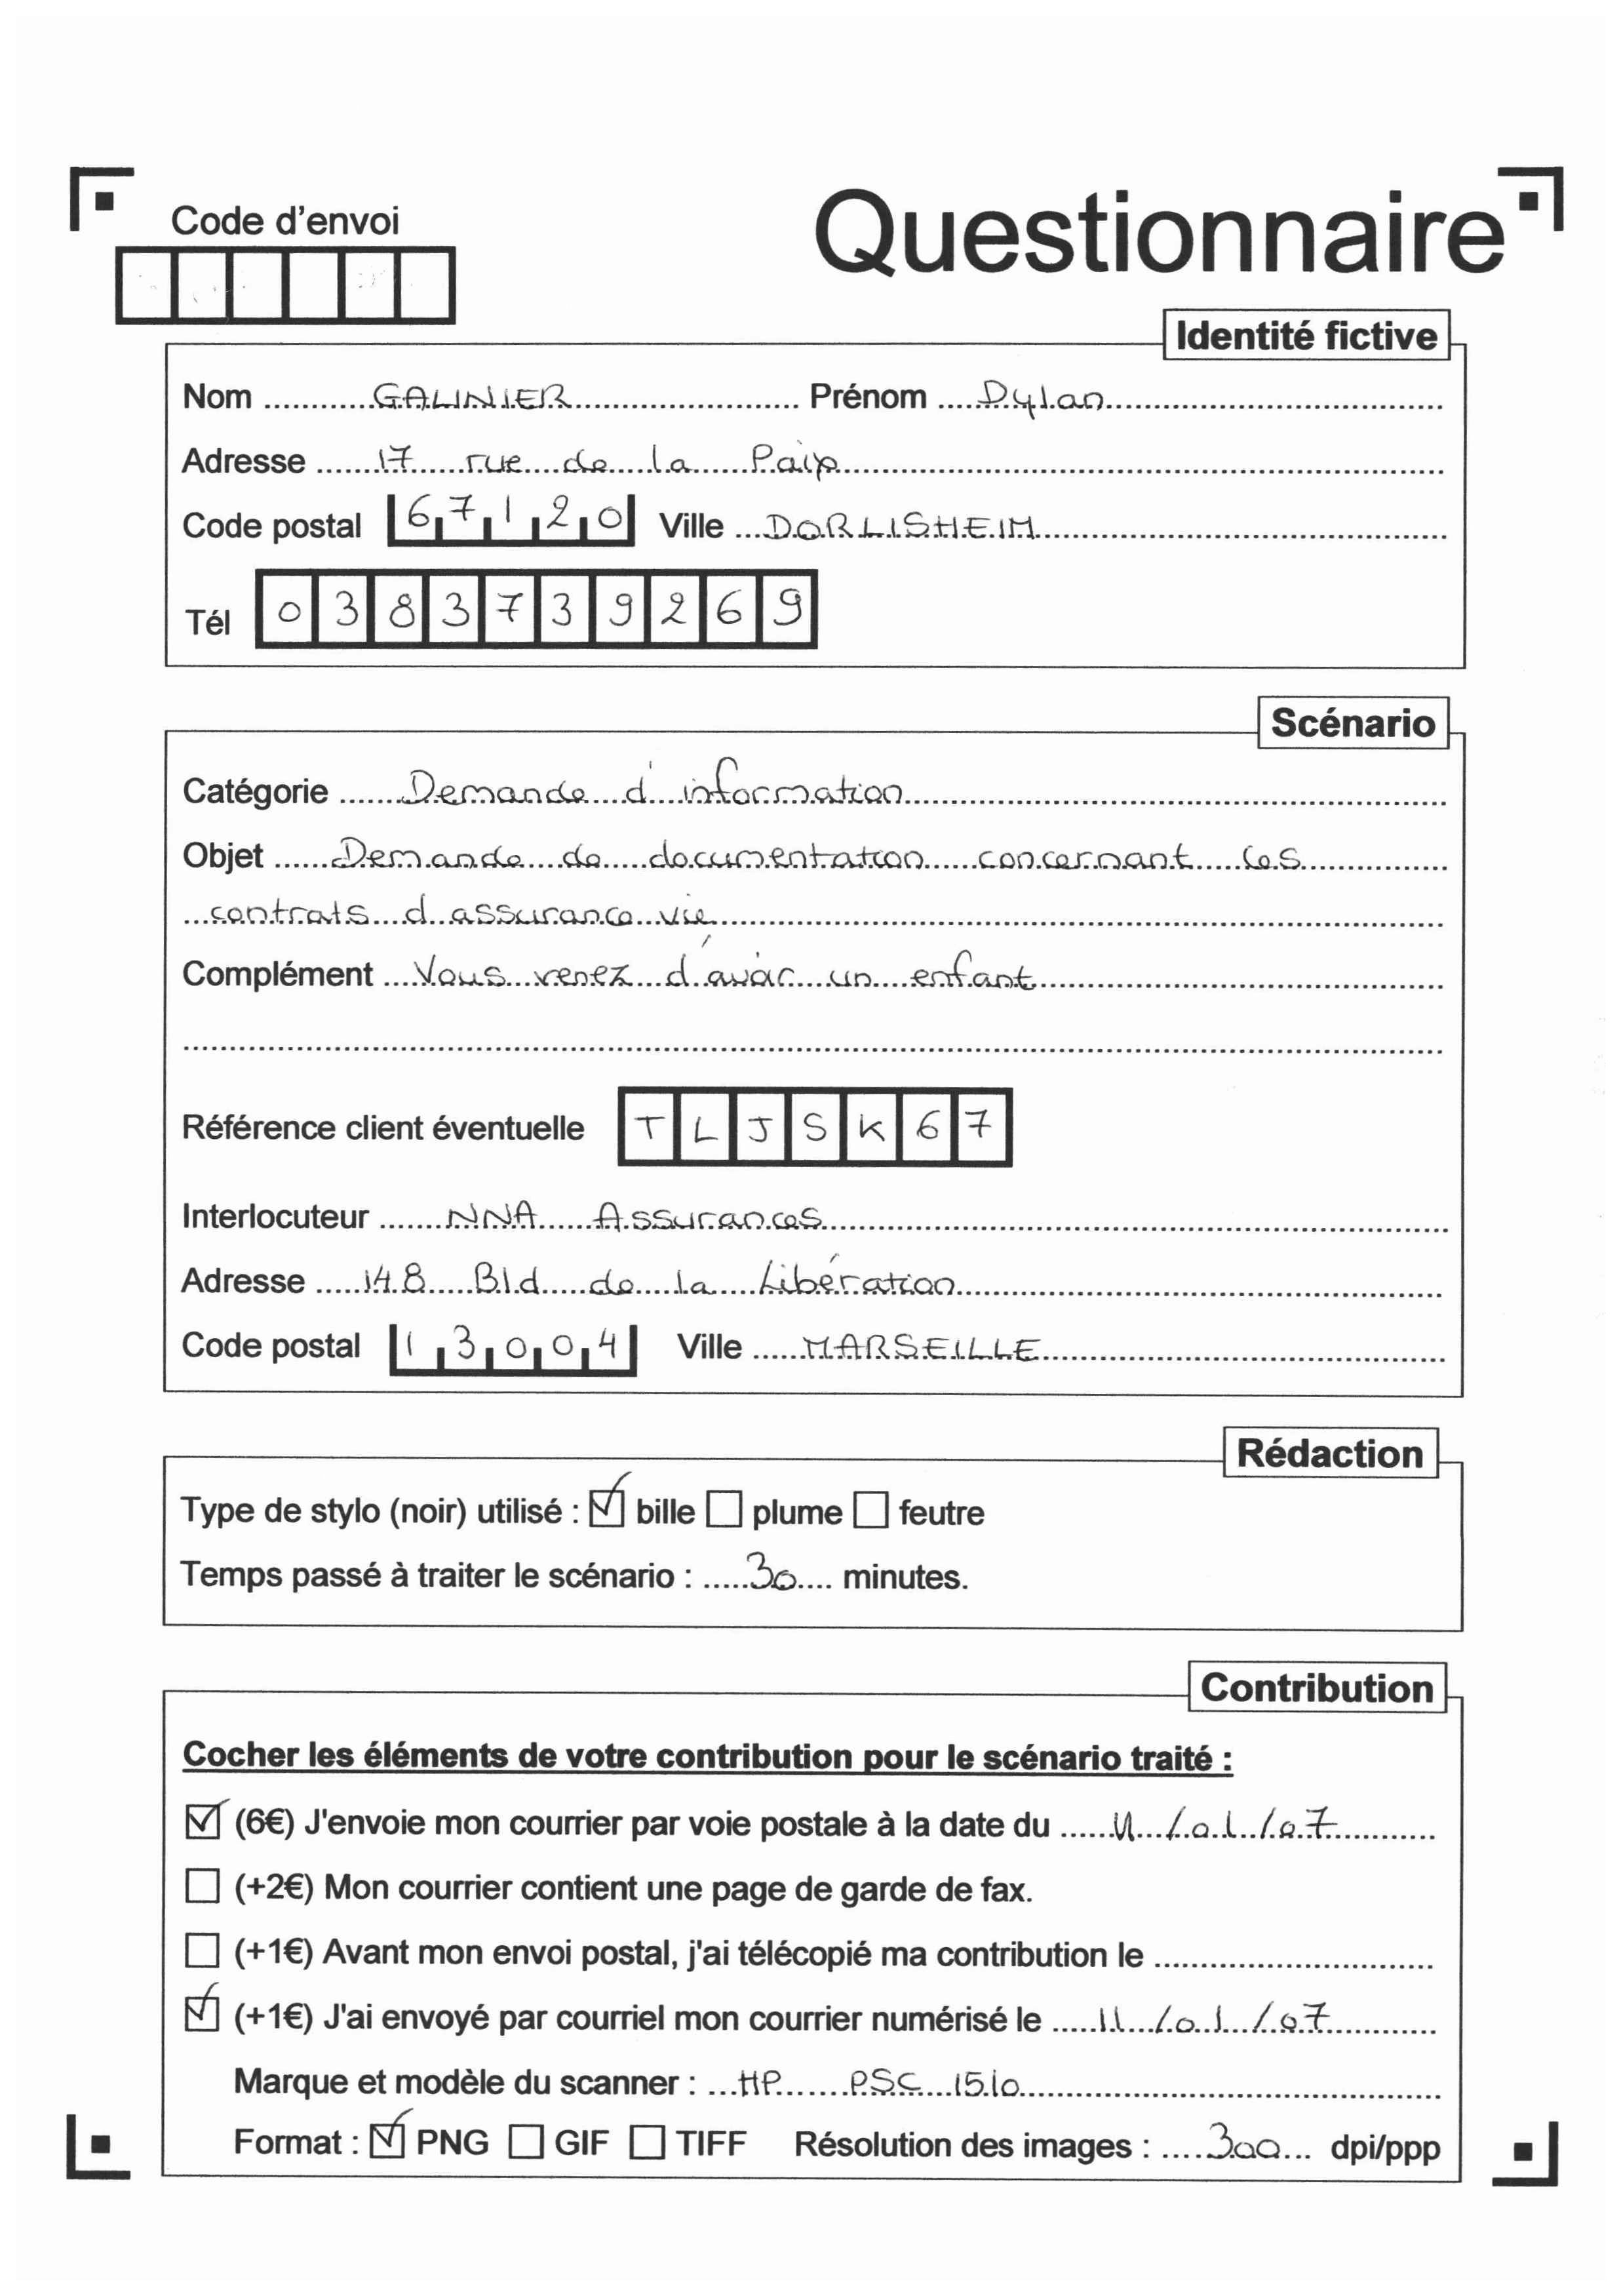 Code d'envoi
Questionnaire
Identité fictive
Nom GALINIER Prénom Dylan
Adresse 17 rue de la Paix
Code postal 67120 Ville DORLISHEIM
Tél 0383739269
Scénario
Catégorie Demande d'information
Objet Demande de documentation concernant les
contrats d assurance vie
Complément Vous venez d'avoir un enfant
Référence client éventuelle TLJSK67
Interlocuteur NNA Assurances
Adresse 148 Bld de la Libération
Code postal 13004 Ville MARSEILLE
Rédaction
Type de stylo (noir) utilisé : bille plume feutre
Temps passé à traiter le scénario : 30 minutes.
Contribution
Cocher les éléments de votre contribution pour le scénario traité :
(6€) J'envoie mon courrier par voie postale à la date du 11/01/07
(+2€) Mon courrier contient une page de garde de fax.
(+1€) Avant mon envoi postal, j'ai télécopié ma contribution le
(+1€) J'ai envoyé par courriel mon courrier numérisé le 11/01/07
Marque et modèle du scanner : HP PSC 1510
Format : PNG GIF TIFF Résolution des images : 300 dpi/ppp